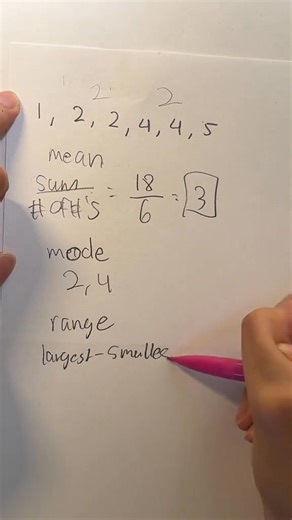 2 2
1, 2, 2, 4, 4, 5
mean
sum
# of #'s = 18/6 = 3
mode
2, 4
range
largest - smalles